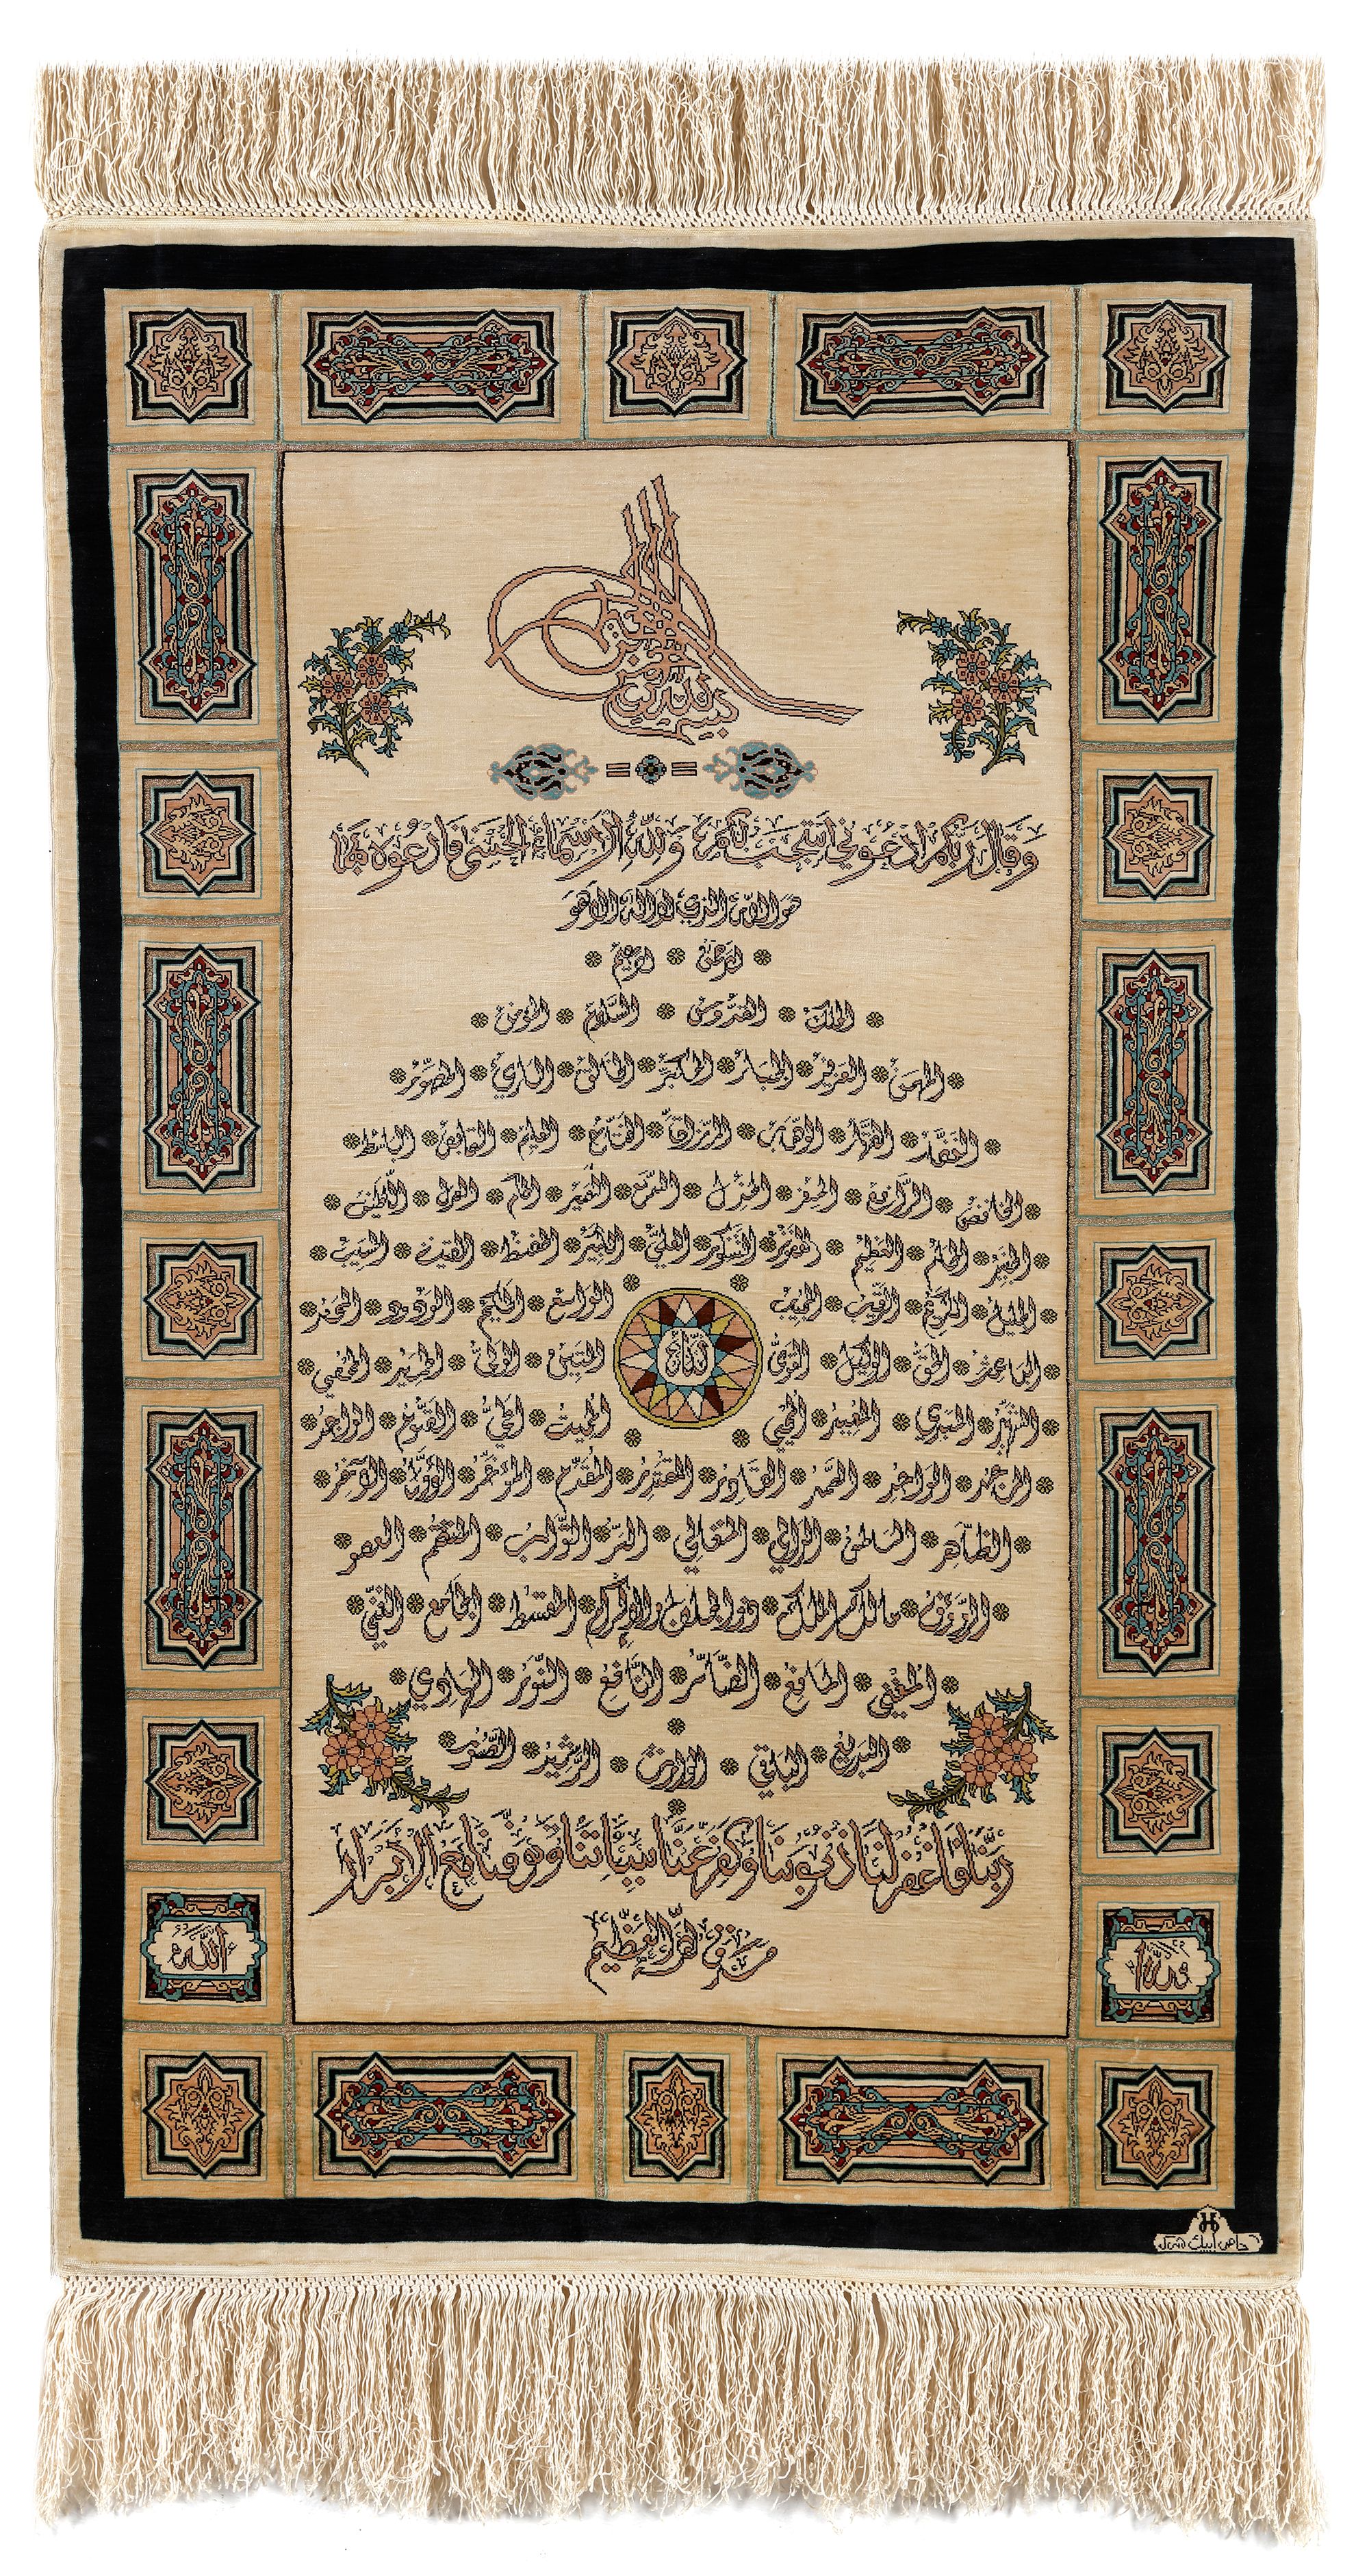 بسم الله الرحمن الرحيم
وقال ربكم ادعوني استجب لكم ولله الاسماء الحسنى فادعوه بها
هو الله الذي لا اله الا هو
الرحمن الرحيم
الملك القدوس السلام المؤمن
المهيمن العزيز الجبار المتكبر الخالق البارئ المصور
الغفار القهار الوهاب الرزاق الفتاح العليم القابض الباسط
الخافض الرافع المعز المذل السميع البصير الحكم العدل اللطيف
الخبير الحليم العظيم الغفور الشكور العلي الكبير الحفيظ المقيت الحسيب
الجليل الكريم الرقيب المجيب الواسع الحكيم الودود المجيد
الباعث الحق الوكيل القوي المتين الولي الحميد المحصي
المبدي المعيد المحيي المميت الحي القيوم الواجد
الماجد الواحد الصمد القادر المقتدر المقدم المؤخر الأول الآخر
الظاهر الباطن الوالي المتعالي البر التواب المنتقم العفو
الرؤوف مالك الملك ذو الجلال والإكرام المقسط الجامع الغني
المغني المانع الضار النافع النور الهادي
البديع الباقي الوارث الرشيد الصبور
ربنا فاغفر لنا ذنوبنا وكفر عنا سيئاتنا وتوفنا مع الابرار
صدق الله العظيم
الله
الله
H